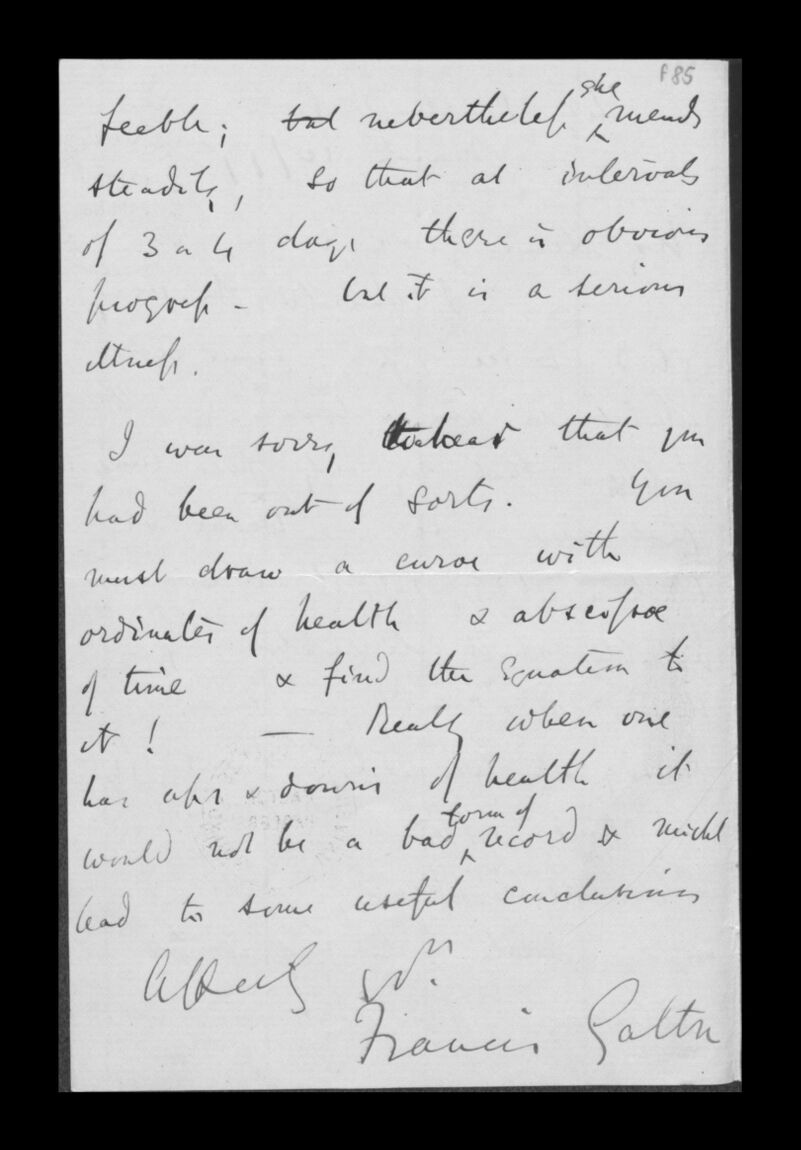 f85
feeble; but nevertheless she mends
steadily, so that at intervals
of 3 or 4 days there is obvious
progress - but it is a serious
illness.
I was sorry to hear that you
had been out of sorts. You
must draw a curve with
ordinates of health & abscissae
of time & find the Equation to
it! — Really when one
has ups & downs of health it
would not be a bad form of record & might
lead to some useful conclusions
Affectly yrs.
Francis Galton